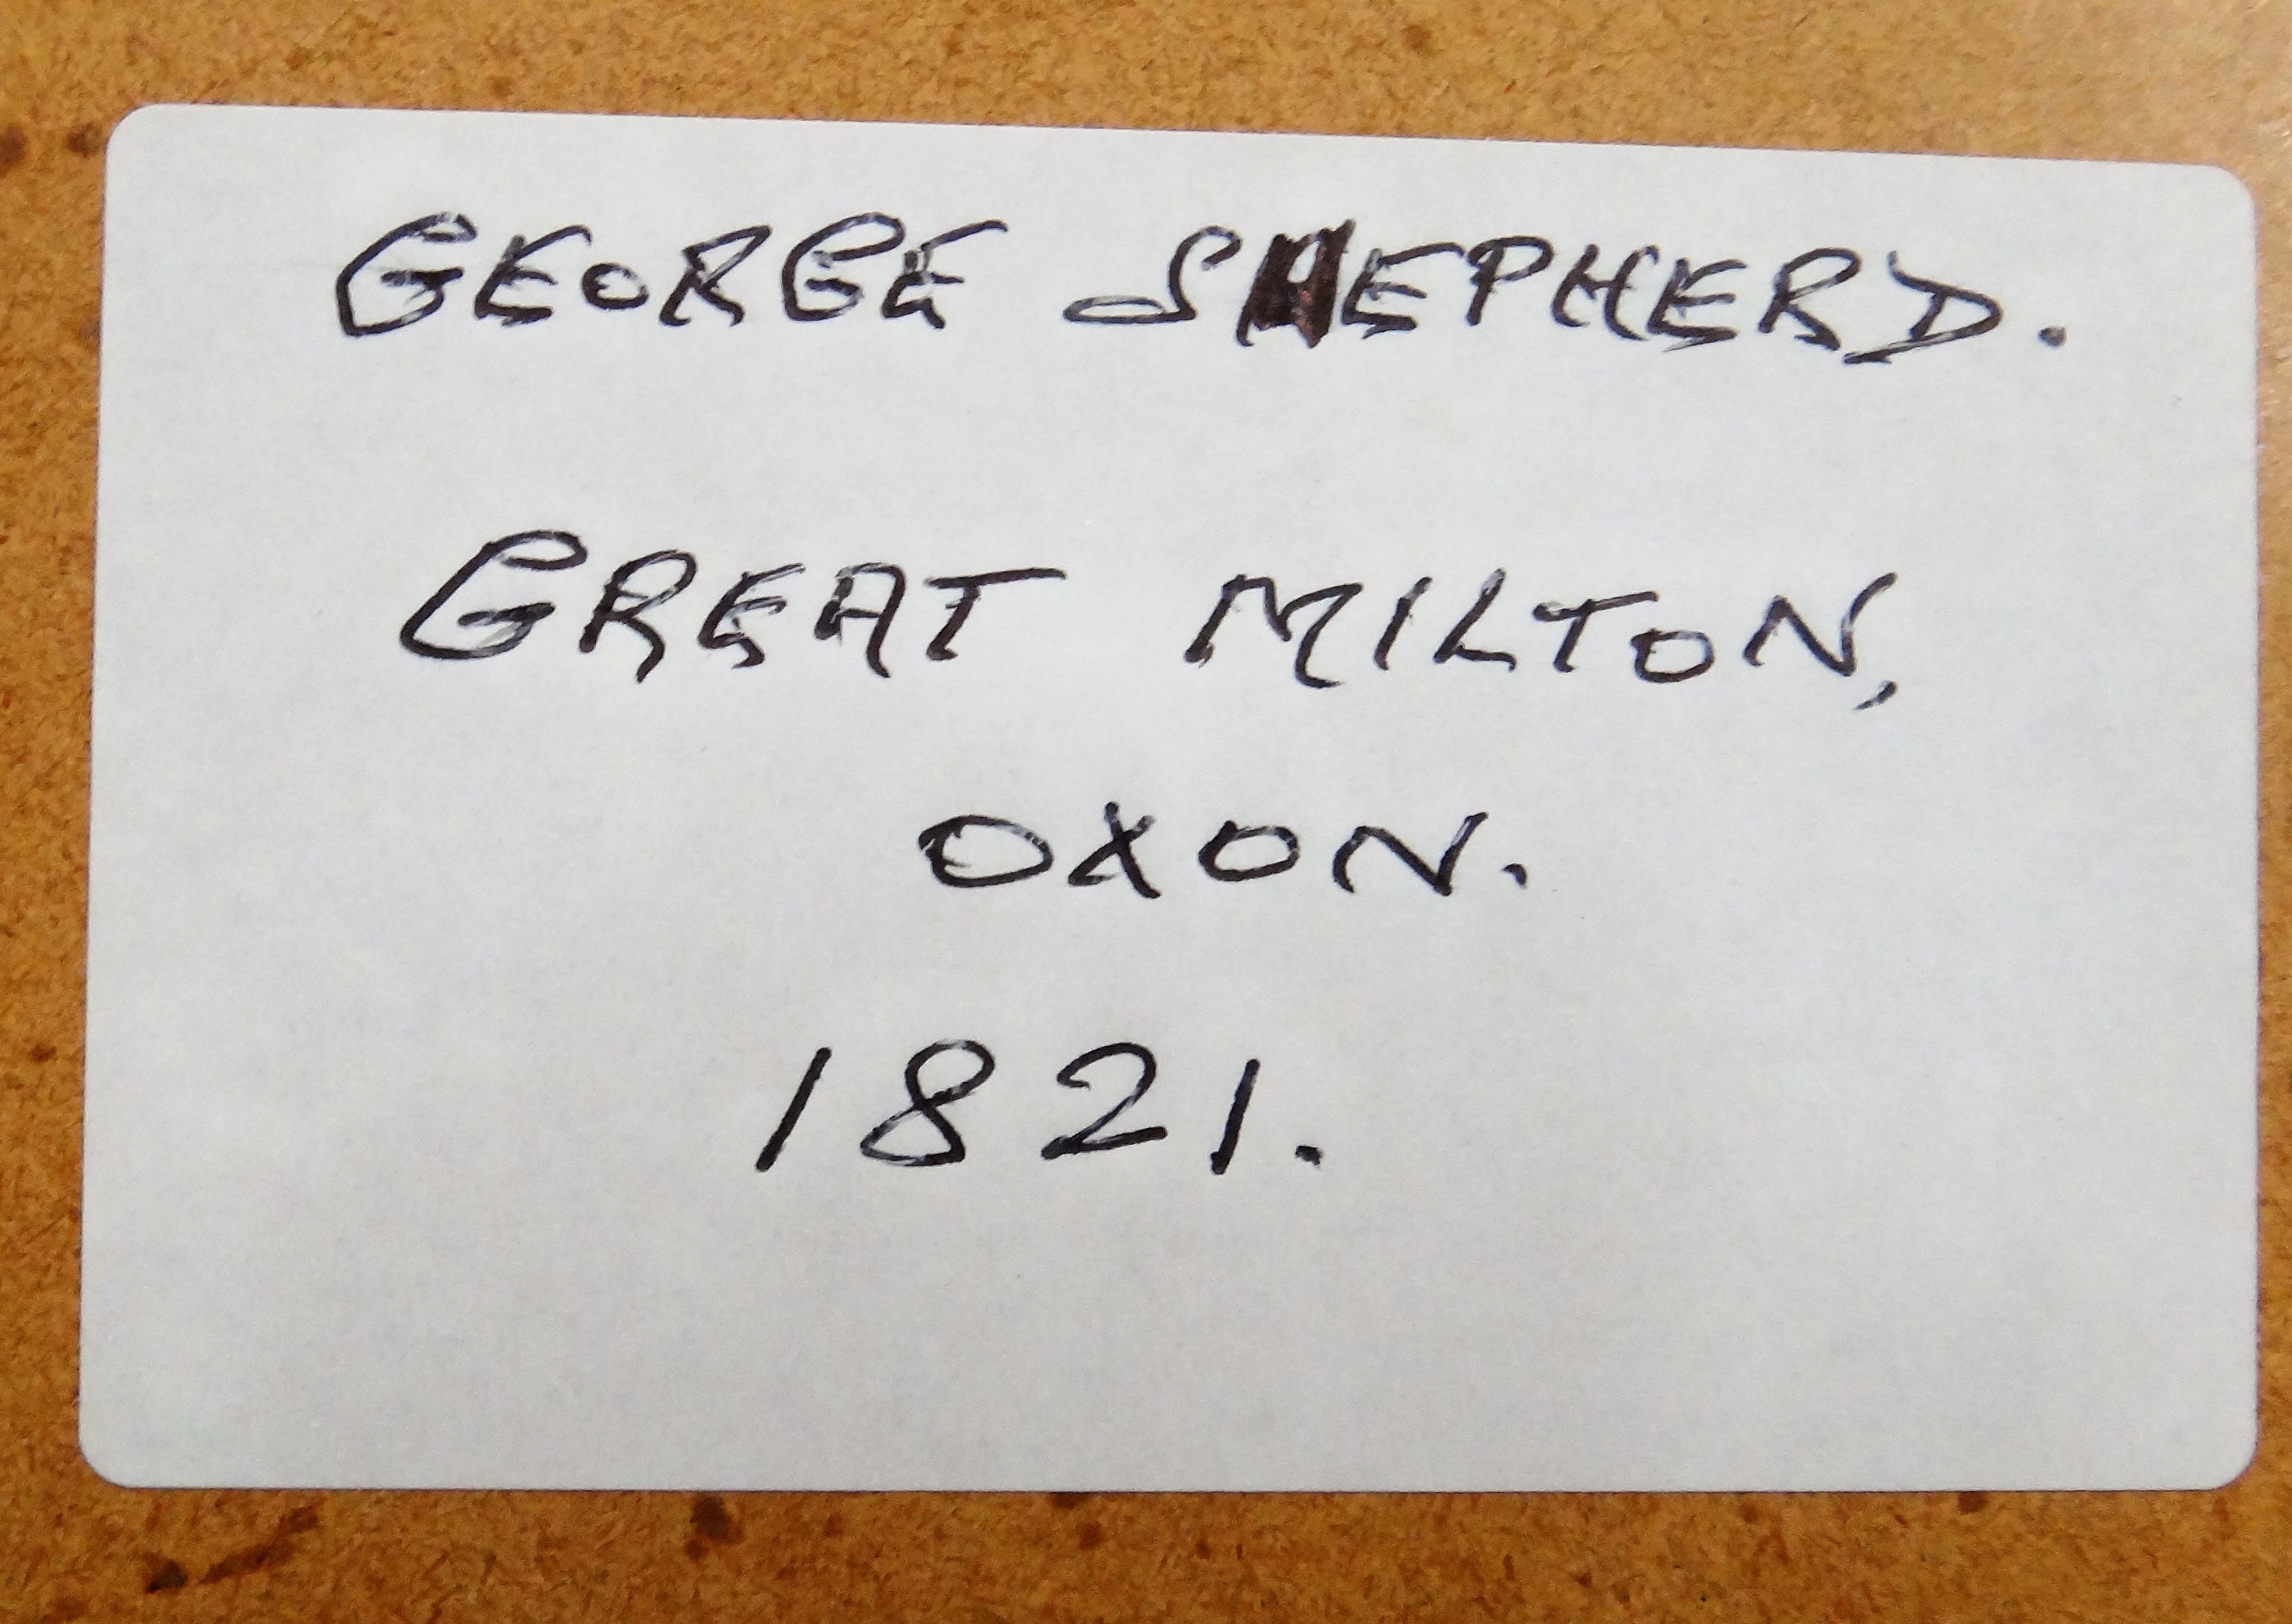 GEORGE SHEPHERD.
GREAT MILTON,
OXON.
1821.